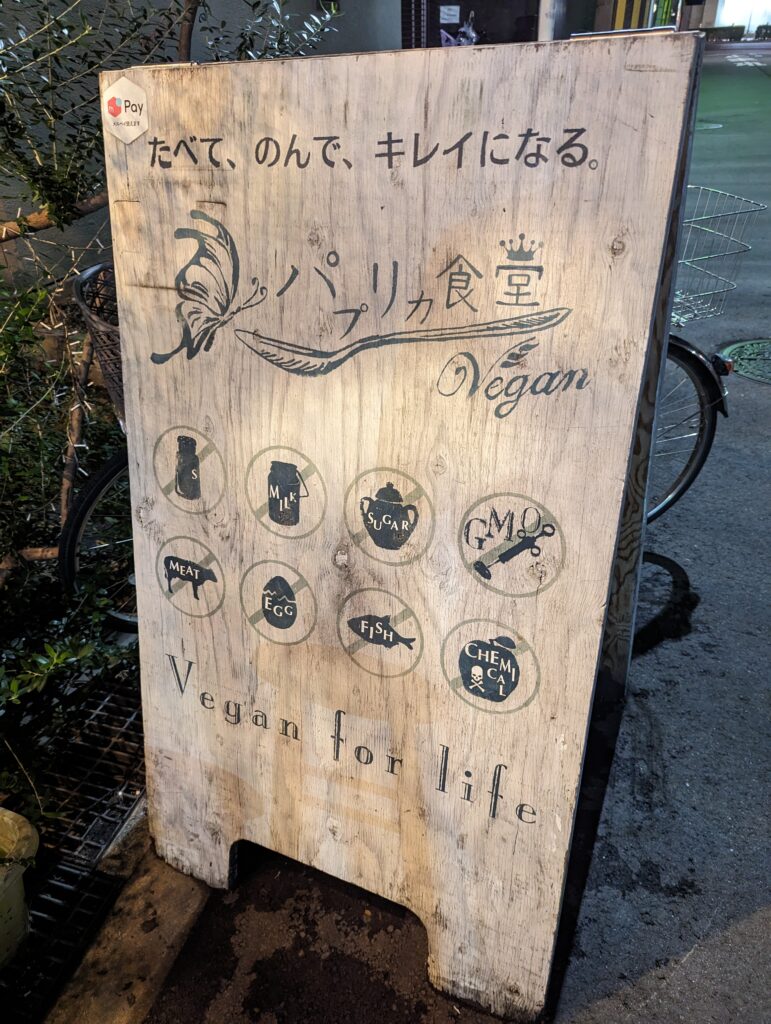 Pay
メルペイ使えます
たべて、のんで、キレイになる。
パプリカ食堂
Vegan
S
MILK
SUGAR
GMO
MEAT
EGG
FISH
CHEMICAL
Vegan for life